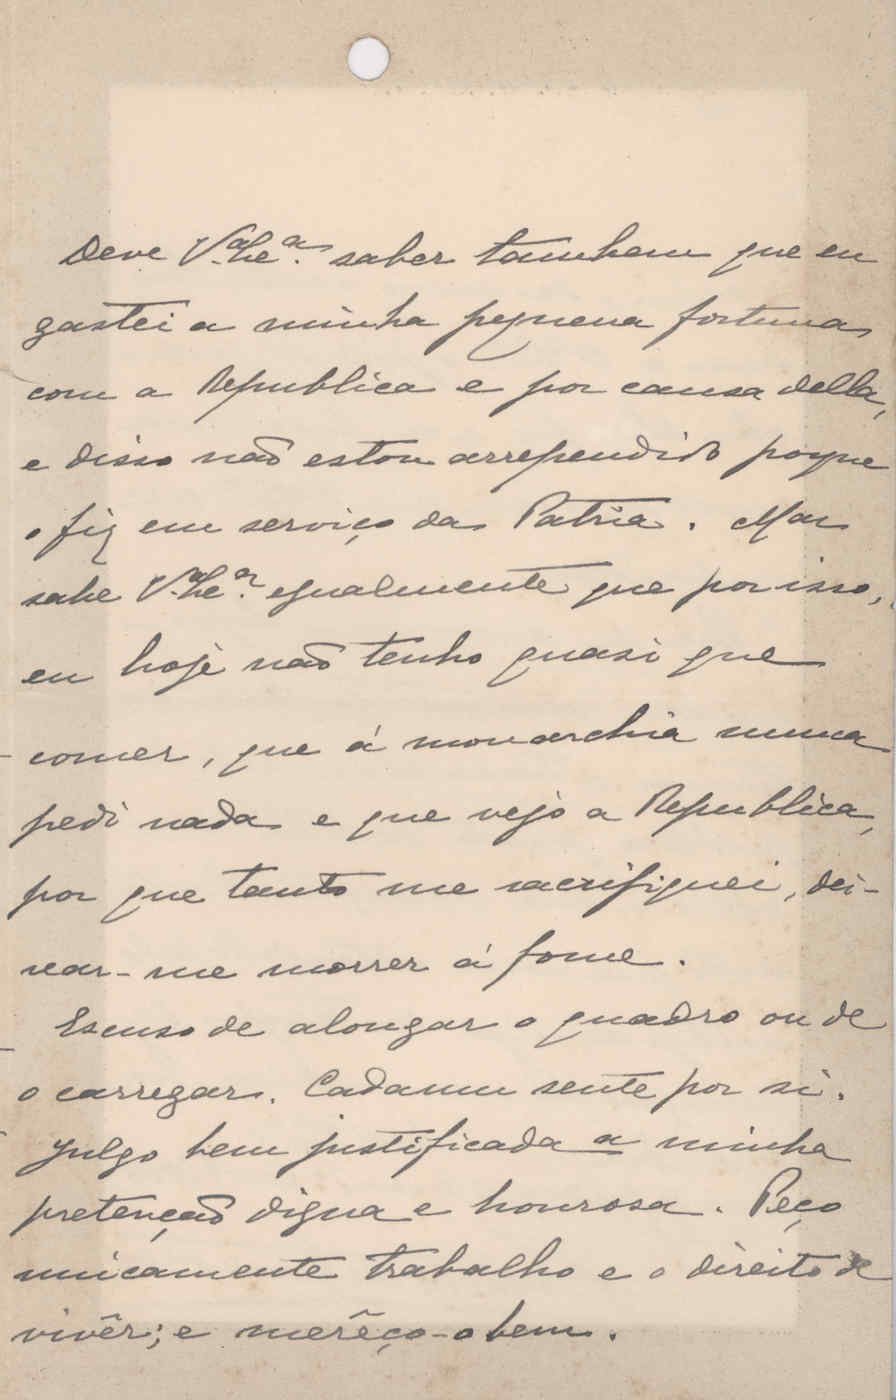 Deve V.ª Ex.ª saber tambem que eu
gastei a minha pequena fortuna
com a Republica e por causa della,
e disso não estou arrependido porque
o fiz em serviço da Patria. Mas
sabe V.ª Ex.ª egualmente que por isso,
eu hoje não tenho quasi que
comer, que á monarchia nunca
pedi nada e que vejo a Republica,
por que tanto me sacrifiquei, dei-
xar-me morrer á fome.
Escuso de alongar o quadro ou de
o carregar. Cada um sente por si.
Julgo bem justificada a minha
pretenção digna e honrosa. Peço
unicamente trabalho e o direito de
vivêr; e merêço-o bem.